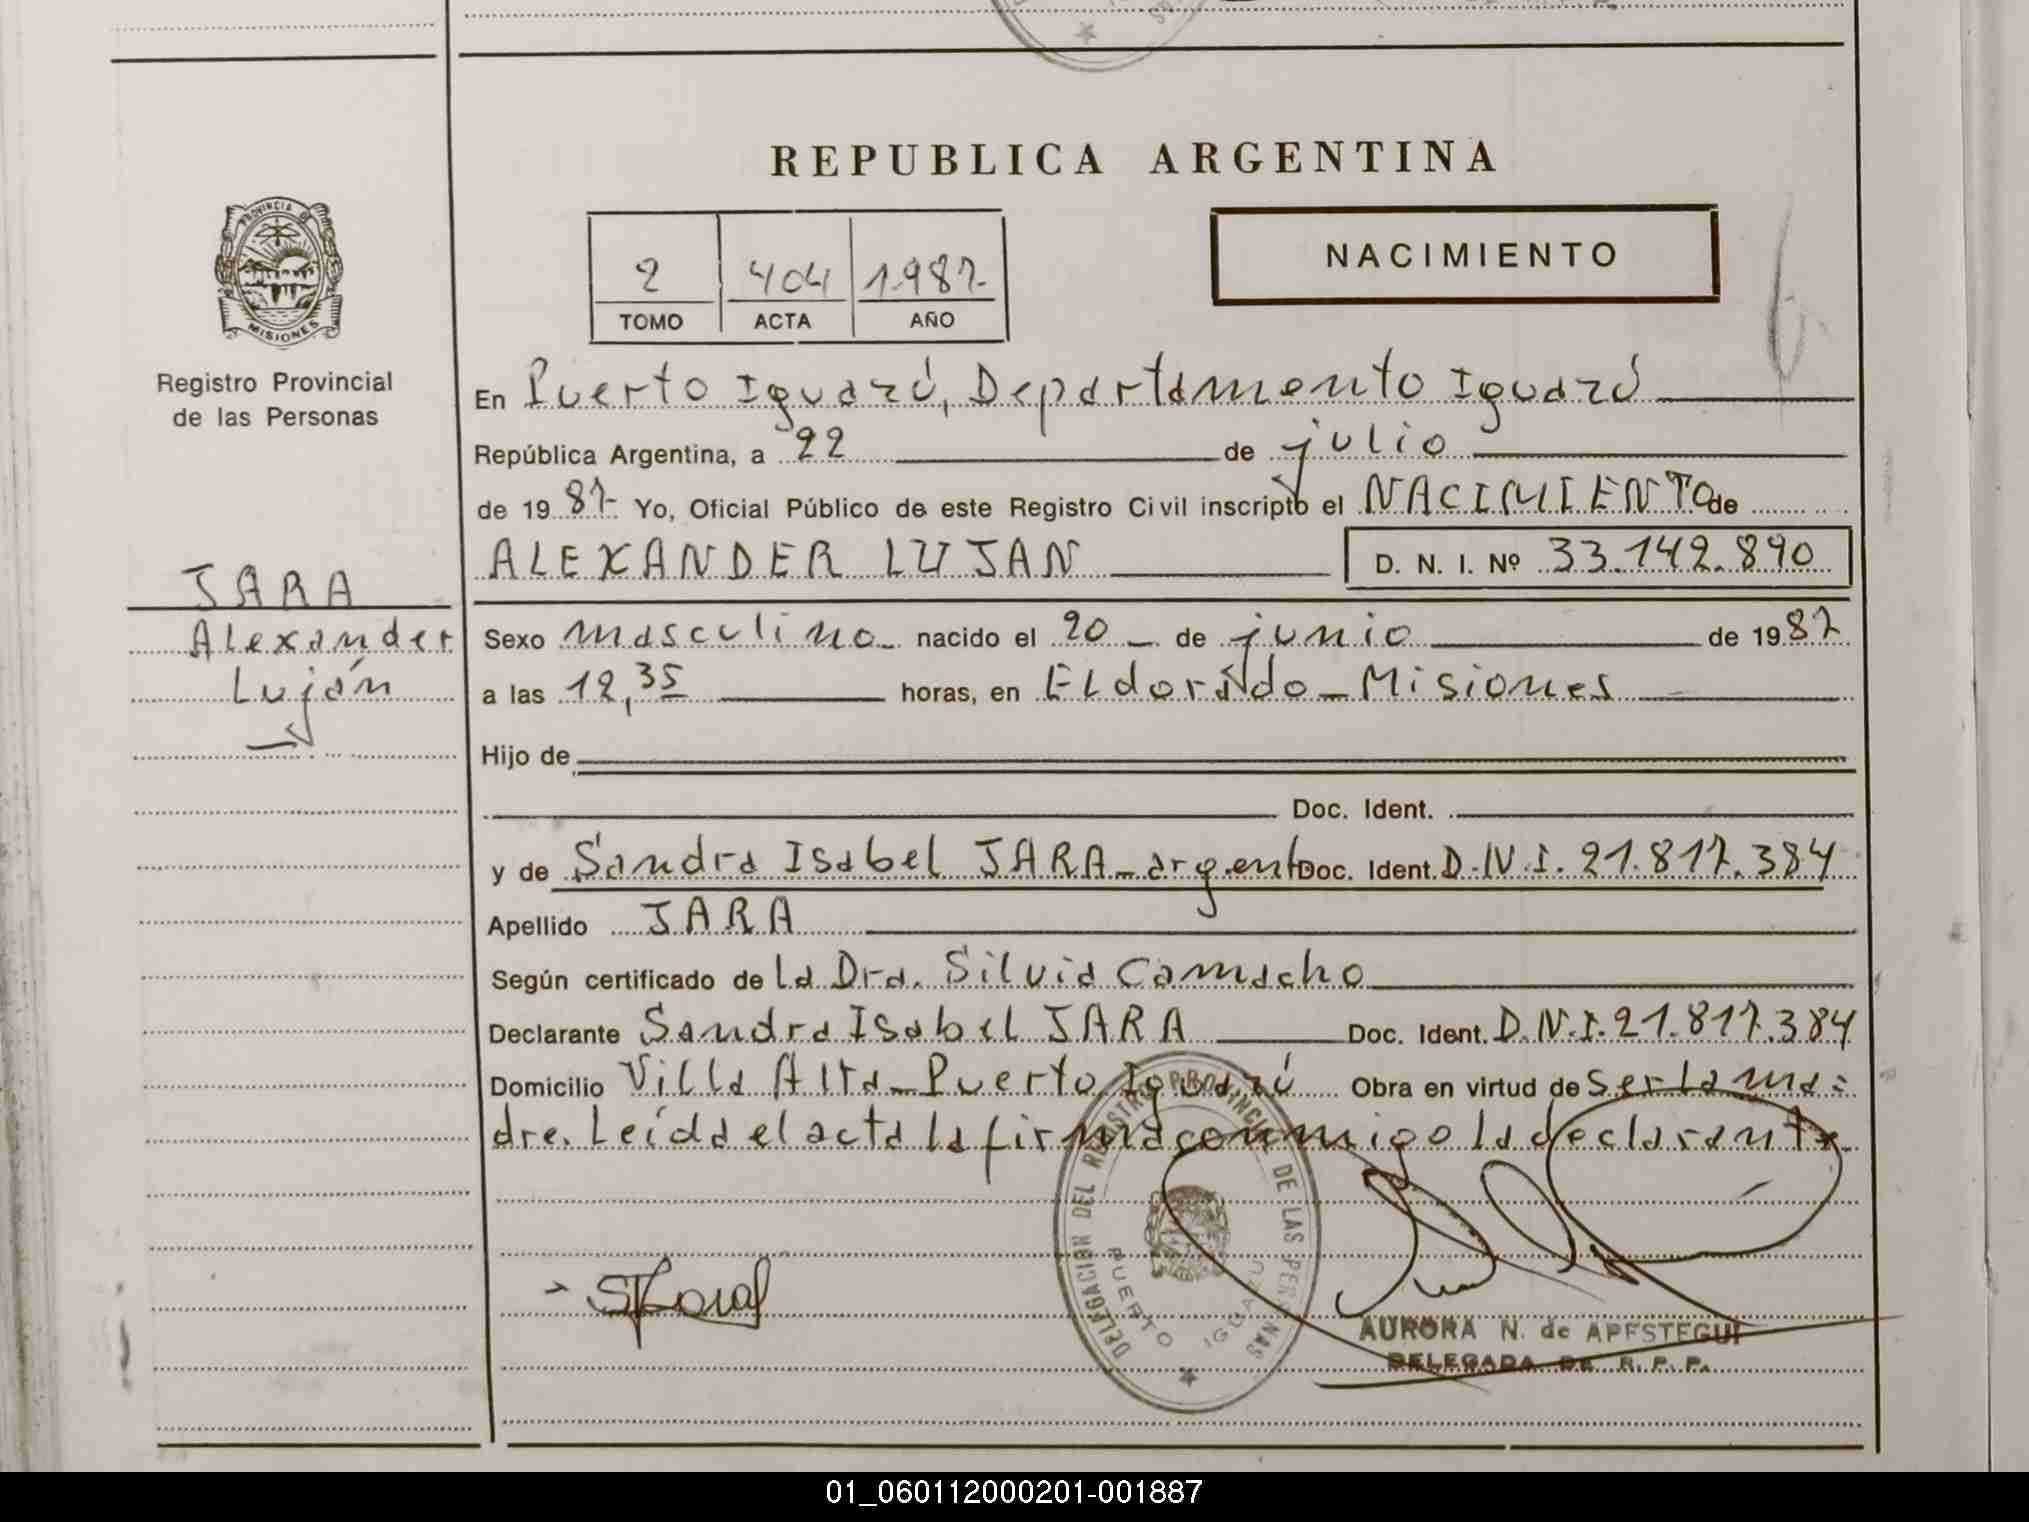 REPUBLICA ARGENTINA
PROVINCIA DE
MISIONES
Registro Provincial
de las Personas
2 404 1987
TOMO ACTA AÑO
NACIMIENTO
En Puerto Iguazú, Departamento Iguazú
República Argentina, a 22 de julio
de 1987 Yo, Oficial Público de este Registro Civil inscripto el NACIMIENTO de
ALEXANDER LUJAN D. N. I. Nº 33.142.890
JARA
Alexander
Luján
Sexo masculino nacido el 20 de junio de 1987
a las 12,35 horas, en ELdorado - Misiones
Hijo de
Doc. Ident.
y de Sandra Isabel JARA - argent Doc. Ident. D.N.I. 21.817.384
Apellido JARA
Según certificado de La Dra. Silvia Camacho
Declarante Sandra Isabel JARA Doc. Ident. D.N.I. 21.817.384
Domicilio Villa Alta - Puerto Iguazú Obra en virtud de ser la ma=
dre. Leída el acta la firma conmigo la declarante
DELEGACION DEL REGISTRO PROVINCIAL DE LAS PERSONAS
PUERTO IGUAZU
AURORA N. de APESTEGUI
DELEGADA DE R. P. P.
01_060112000201-001887